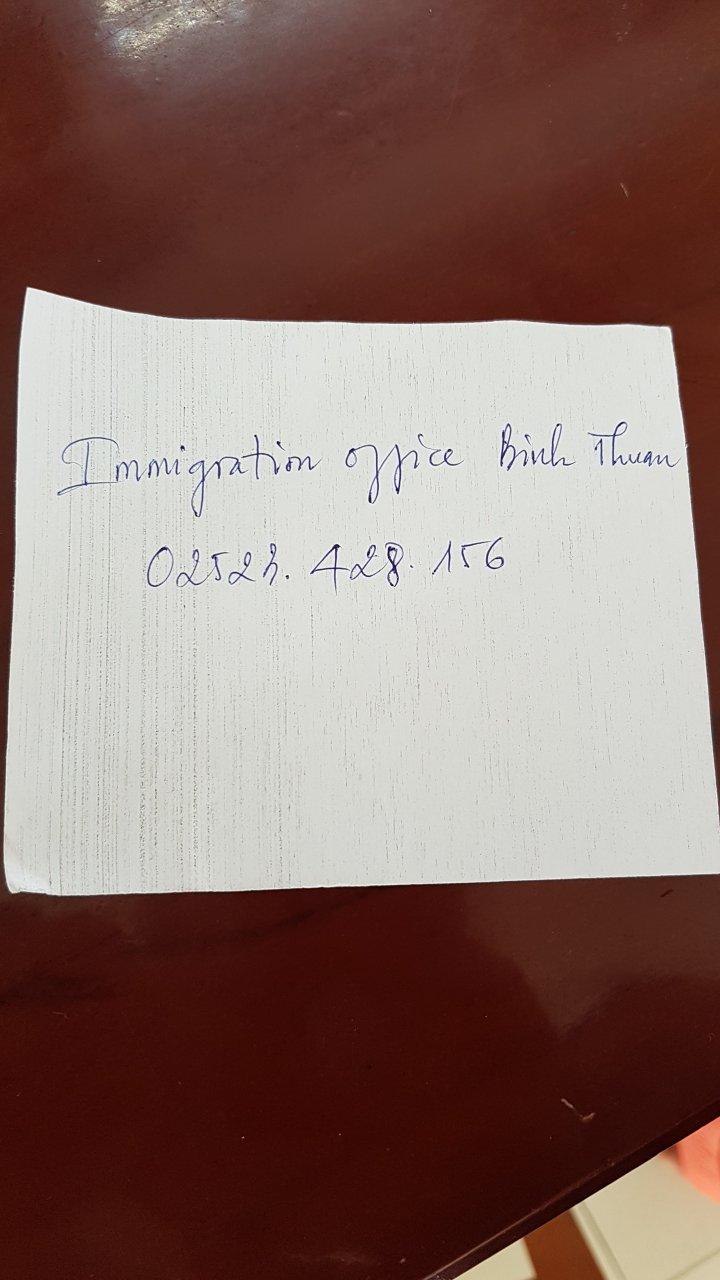 Immigration office Binh Thuan
02523. 428. 156